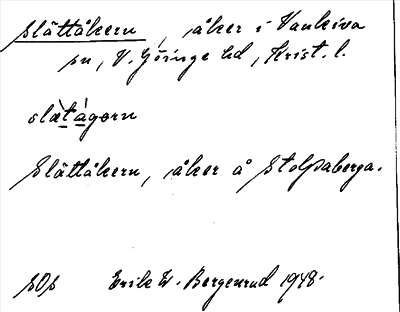 Slättåkern, åker i Vankiva
sn, V. Göinge hd, Krist. l.
slætàgorn
Slättåkern, åker å Stolpaberga.
sOs Erik W. Bergenrud 1948.